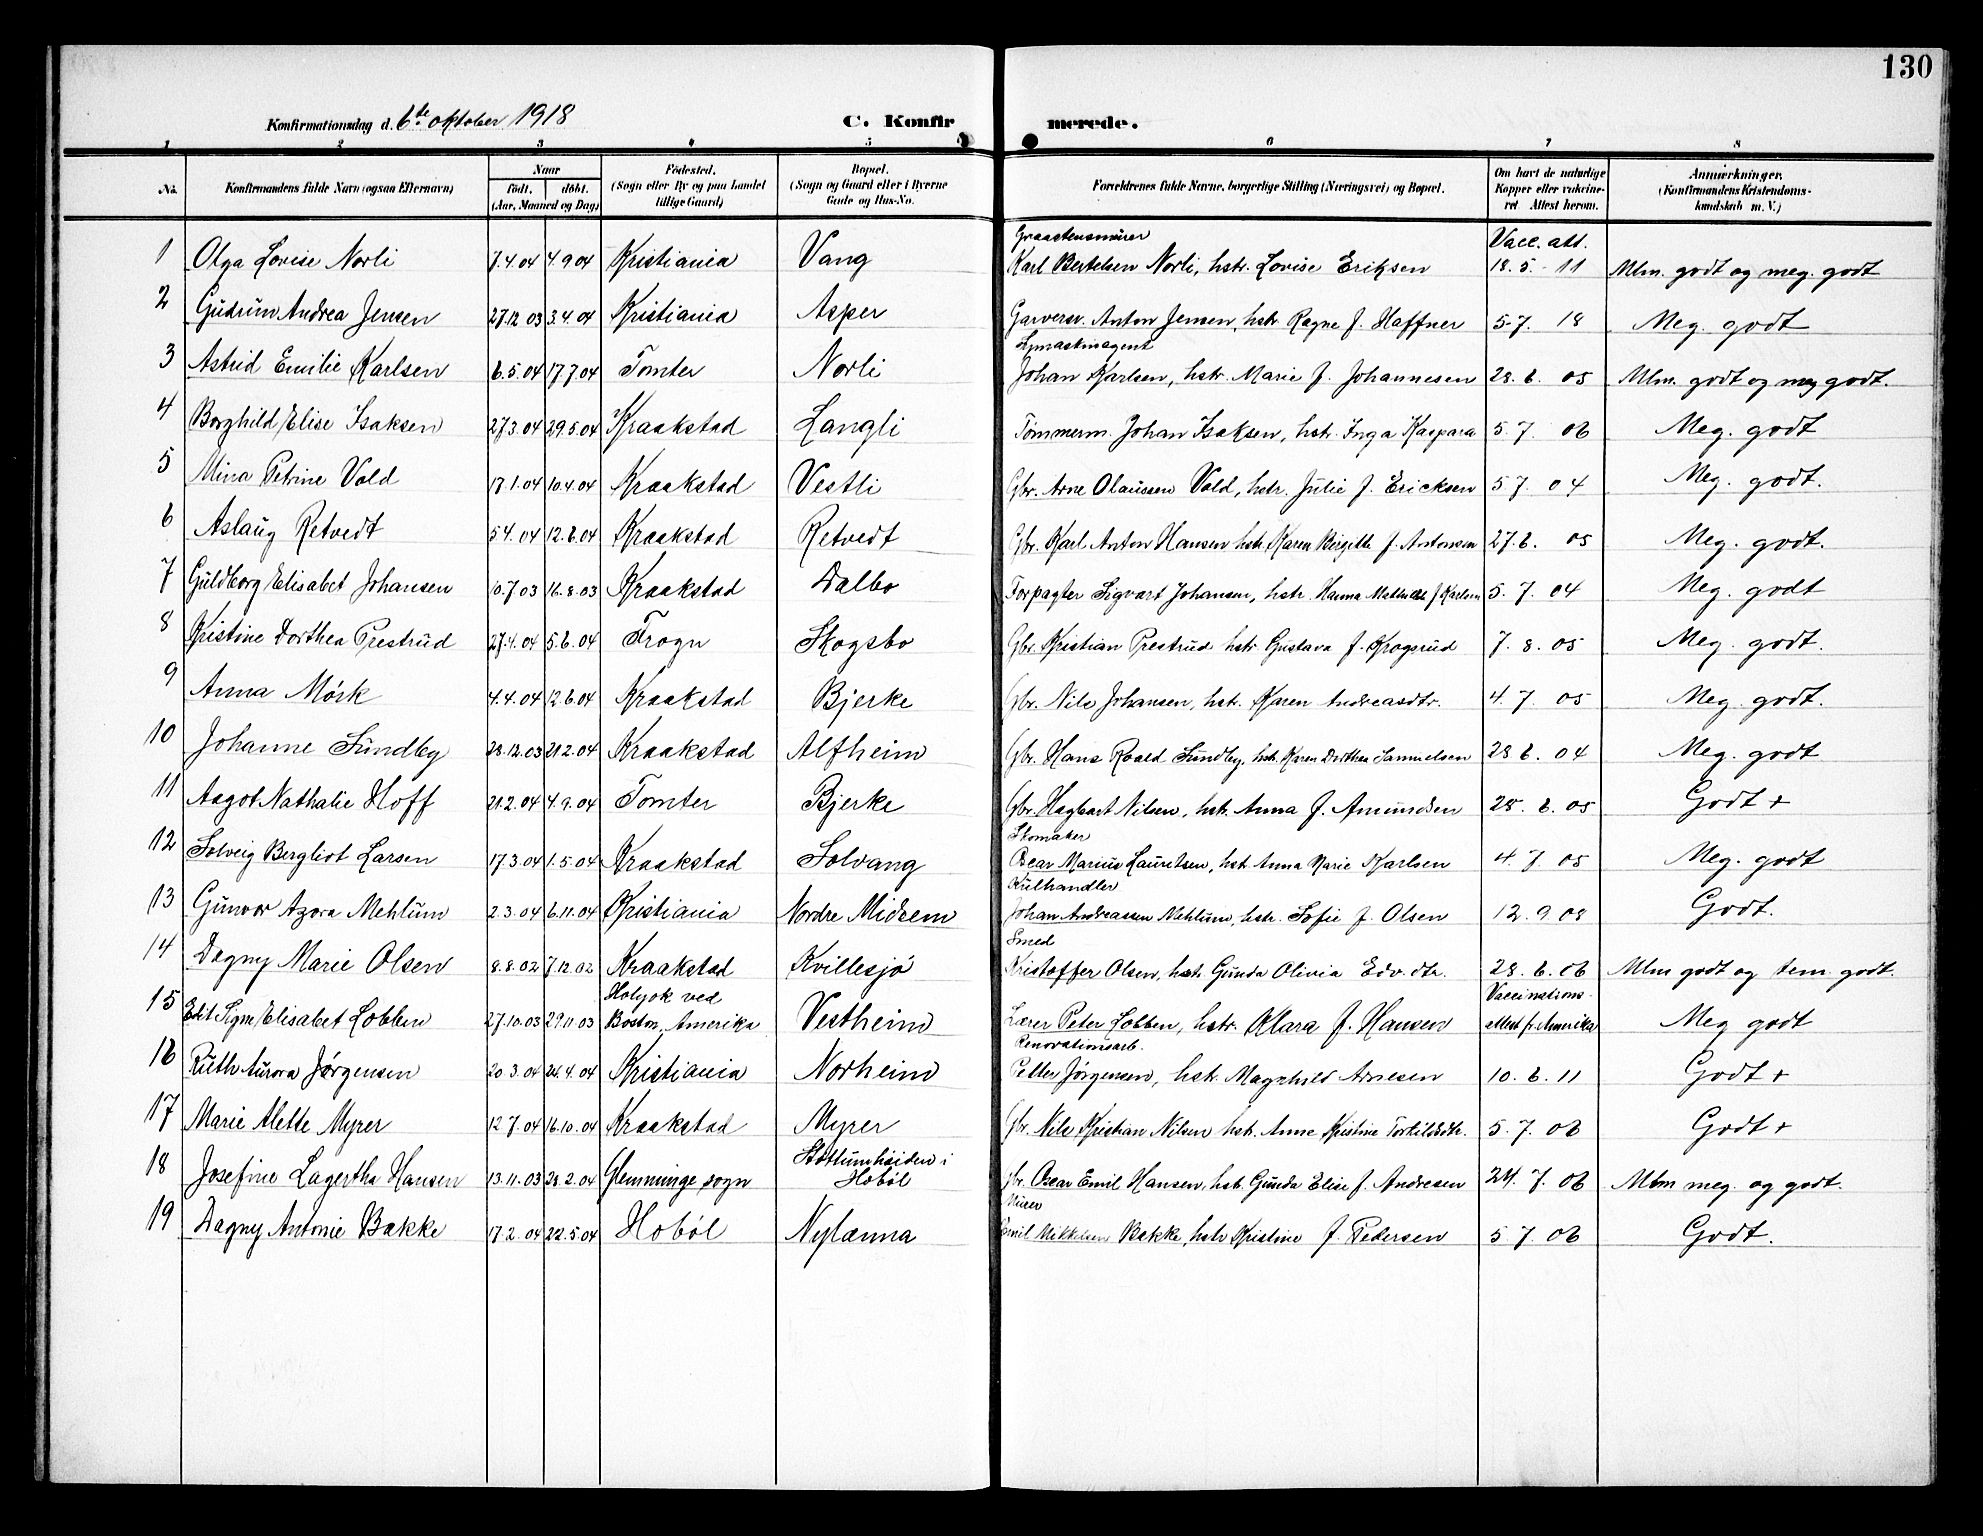 130
Konfirmationsdag d. 6te oktober 1918
C. Konfirmerede.
1 2 3 4 5 6 7 8
No. Konfirmandens fulde Navn (ogsaa Efternavn) Naar født. døbt. (Aar, Maaned og Dag) Fødested. (Sogn eller By og paa Landet tillige Gaard) Bopæl. (Sogn og Gaard eller i Byerne Gade og Hus-No. Forældrenes fulde Navne, borgerlige Stilling (Næringsvei) og Bopæl. Om havt de naturlige Kopper eller vakcineret. Attest herom. Anmærkninger. (Konfirmandens Kristendomskundskab m. V.)
1 Olga Lovise Norli 7.4.04 4.9.04 Kristiania Vang Graastensmurer Karl Bertelsen Norli, hstr. Lovise Eriksen Vacc. att. 18.5.-11 Mlm. godt og meg. godt
2 Gudrun Andrea Jensen 27.12 03 3.4.04 Kristiania Asper Garversv. Anton Jensen, hstr. Ragne f. Haffner 5.7. 18 Meg. godt
3 Astrid Emilie Karlsen 6.5.04 17.7.04 Tomter Norli Symaskinagent Johan Karlsen, hstr. Marie f. Johannesen 28.6. 05 Mlm. godt og meg godt.
4 Borghild Elise Isaksen 27.3.04 29.5.04 Kraakstad Langli Tømmerm. Johan Isaksen, hstr. Inga Kaspara 5.7. 06 Meg. godt
5 Mina Petrine Vold 17.1.04 10.4.04 Kraakstad Vestli Gbr. Arne Olaussen Vold, hstr. Julie f. Ericksen 5 7. 04 Meg. godt.
6 Aslaug Retvedt 5 4. 04 12.6.04 Kraakstad Retvedt Gbr. Karl Anton Hansen hstr. Karen Birgitte f. Antonsen 27.6. 05 Meg. godt.
7 Guldborg Elisabet Johansen 10.7.03 16.8.03 Kraakstad Dalbo Forpagter Sigvart Johansen, hstr. Hanna Mathilde f Karlsen 5. 7. 04 Meg. godt
8 Kristine Dorthea Prestrud 27.4.04 5.6.04 Frogn Skogsbo Gbr. Kristian Prestrud hstr. Gustava f. Krogsrud 7. 8. 05 Meg. godt.
9 Anna Mørk 4.4.04 12.6.04 Kraakstad Bjerke Gbr. Nils Johansen, hstr. Karen Andreasdtr. 4.7. 05 Meg. godt.
10 Johanne Sundby 28.12.03 21.2.04 Kraakstad Alfheim Gbr. Hans Roald Sundby, hstr. Karen Dorthea Samuelsen 28 6. 04 Meg. godt
11 Aagot Nathalie Hoff 21.2.04 4.9.04 Tomter Bjerke Gbr Hagbart Nilsen, hstr. Anna f. Amundsen 28. 6. 05 Godt +
12 Solveig Bergliot Larsen 17.3.04 1.5.04 Kraakstad Solvang Skomaker Oscar Marius Lauritsen, hst. Anna Marie Karlsen 4. 7. 05 Meg. godt
13 Gunvor Azora Mehlum 2.3.04 6.11.04 Kristiania Nordre Midsem Kulhandler Johan Andreassen Mehlum, hstr. Sofie f. Olsen 12. 9 08 Godt.
14 Dagny Marie Olsen 8.8.02 7.12.02 Kraakstad Kvillesjø Smed Kristoffer Olsen, hstr Gunda Olivia Edv.dtr. 28. 6. 06 Mlm godt og tem. godt.
15 Edit Signe Elisabet Lobben 27.10.03 29.11 03 Holyok ved Boston, Amerika Vestheim Lærer Peter Lobben, hstr. Klara f. Hansen Vaccinationsattest fr. Amerika Meg godt
16 Ruth Aurora Jørgensen 20 3.04 24.4.04 Kristiania Norheim Renovationsarb. Petter Jørgensen, hstr. Magnhild Arnesen 10. 6. 11 Godt +
17 Marie Alette Myrer 12 7.04 16.10.04 Kraakstad Myrer Gbr. Nils Kristian Nilsen hstr. Anne Kristine Torkildsdtr. 5. 7. 06 Godt +
18 Josefine Lagertha Hansen 13.11.03 28.2.04 Glemminge sogn Slottumhøiden i Hobøl Gbr. Oscar Emil Hansen, hstr. Gunda Elise f. Andresen 24. 7. 06 Mlm meg. og godt.
19 Dagny Antonie Bakke 17.2.04 22.5.04 Hobøl Nylænna Murer Emil Mikkelsen Bakke, hstr Kristine f. Pedersen 5 7. 06 Godt.